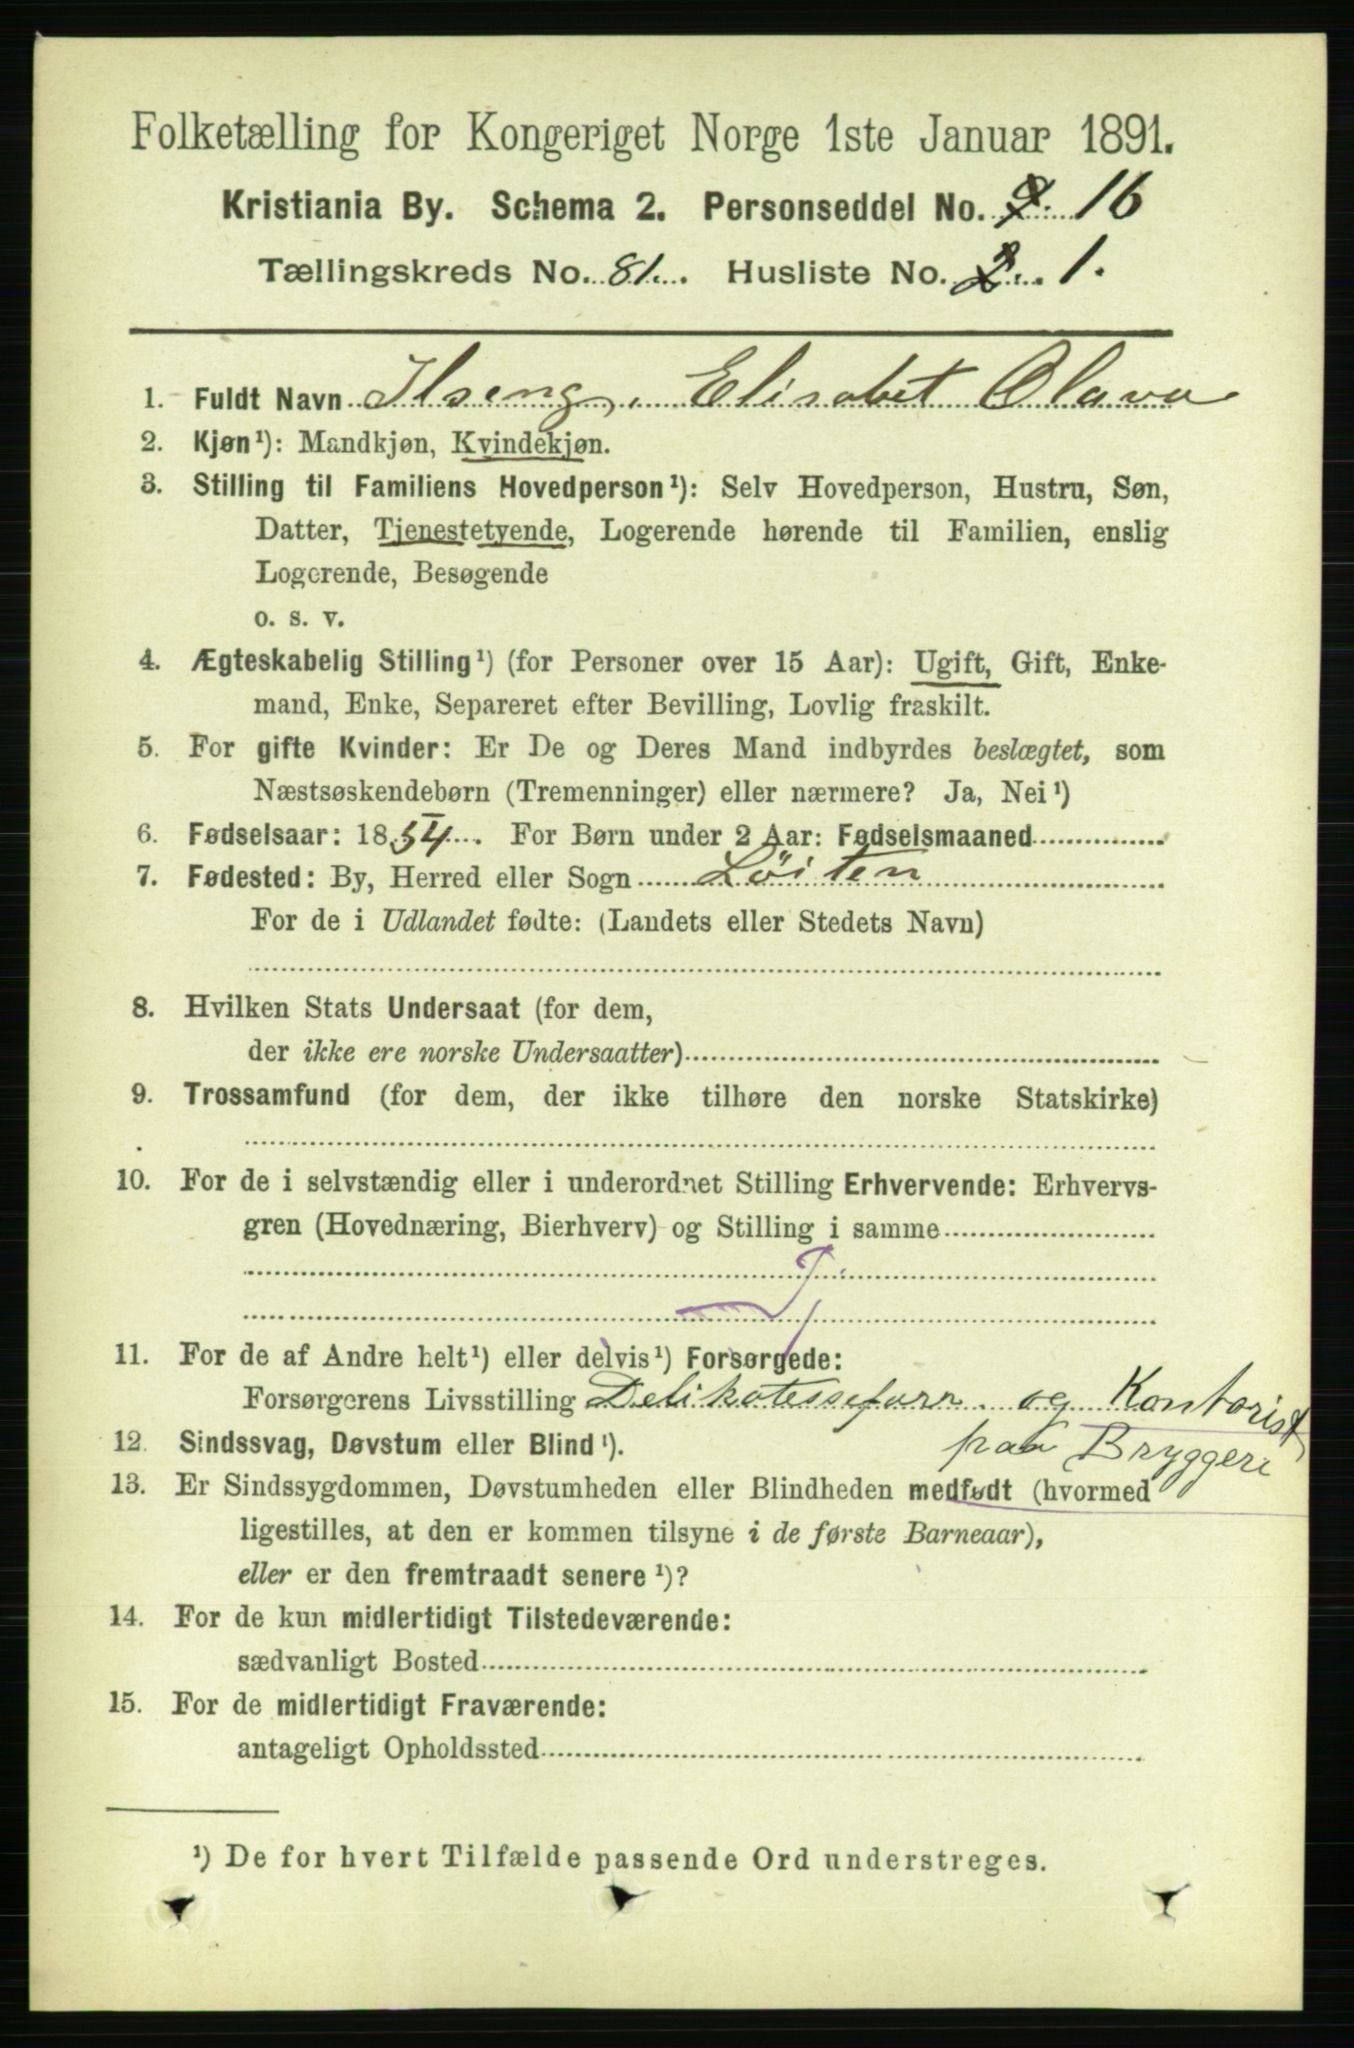 Folketælling for Kongeriget Norge 1ste Januar 1891.
Kristiania By. Schema 2. Personseddel No. 16
Tællingskreds No. 81. Husliste No. 2. 1.
1. Fuldt Navn Ilseng, Elisabet Olava
2. Kjøn¹): Mandkjøn, Kvindekjøn.
3. Stilling til Familiens Hovedperson¹): Selv Hovedperson, Hustru, Søn,
Datter, Tjenestetyende, Logerende hørende til Familien, enslig
Logerende, Besøgende
o. s. v.
4. Ægteskabelig Stilling¹) (for Personer over 15 Aar): Ugift, Gift, Enke-
mand, Enke, Separeret efter Bevilling, Lovlig fraskilt.
5. For gifte Kvinder: Er De og Deres Mand indbyrdes beslægtet, som
Næstsøskendebørn (Tremenninger) eller nærmere? Ja, Nei¹)
6. Fødselsaar: 1854. For Børn under 2 Aar: Fødselsmaaned
7. Fødested: By, Herred eller Sogn Löiten
For de i Udlandet fødte: (Landets eller Stedets Navn)
8. Hvilken Stats Undersaat (for dem,
der ikke ere norske Undersaatter)
9. Trossamfund (for dem, der ikke tilhøre den norske Statskirke)
10. For de i selvstændig eller i underordnet Stilling Erhvervende: Erhvervs-
gren (Hovednæring, Bierhverv) og Stilling i samme
11. For de af Andre helt¹) eller delvis¹) Forsørgede:
Forsørgerens Livsstilling og Kontorist
paa Bryggeri
12. Sindssvag, Døvstum eller Blind¹).
13. Er Sindssygdommen, Døvstumheden eller Blindheden medfødt (hvormed
ligestilles, at den er kommen tilsyne i de første Barneaar),
eller er den fremtraadt senere¹)?
14. For de kun midlertidigt Tilstedeværende:
sædvanligt Bosted
15. For de midlertidigt Fraværende:
antageligt Opholdssted
¹) De for hvert Tilfælde passende Ord understreges.